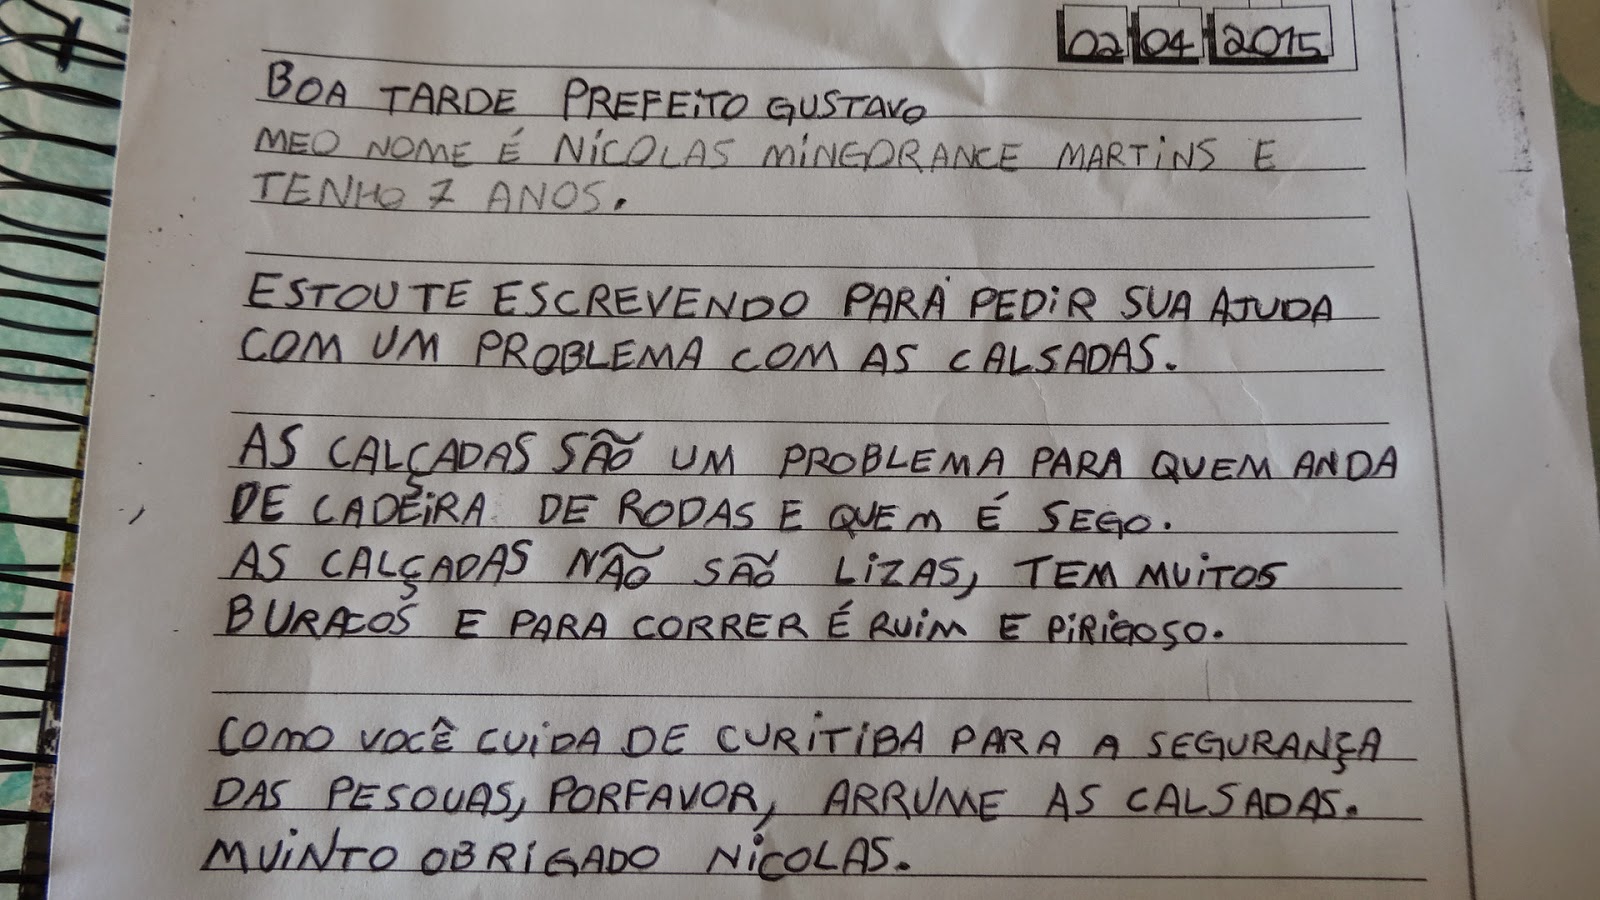 02 04 2015
BOA TARDE PREFEITO GUSTAVO
MEO NOME É NICOLAS MINGORANCE MARTINS E
TENHO 7 ANOS.
ESTOU TE ESCREVENDO PARA PEDIR SUA AJUDA
COM UM PROBLEMA COM AS CALSADAS.
AS CALÇADAS SÃO UM PROBLEMA PARA QUEM ANDA
DE CADEIRA DE RODAS E QUEM É SEGO.
AS CALÇADAS NÃO SÃO LIZAS, TEM MUITOS
BURACOS E PARA CORRER É RUIM E PIRIGOSO.
COMO VOCÊ CUIDA DE CURITIBA PARA A SEGURANÇA
DAS PESOUAS, PORFAVOR, ARRUME AS CALSADAS.
MUINTO OBRIGADO NICOLAS.